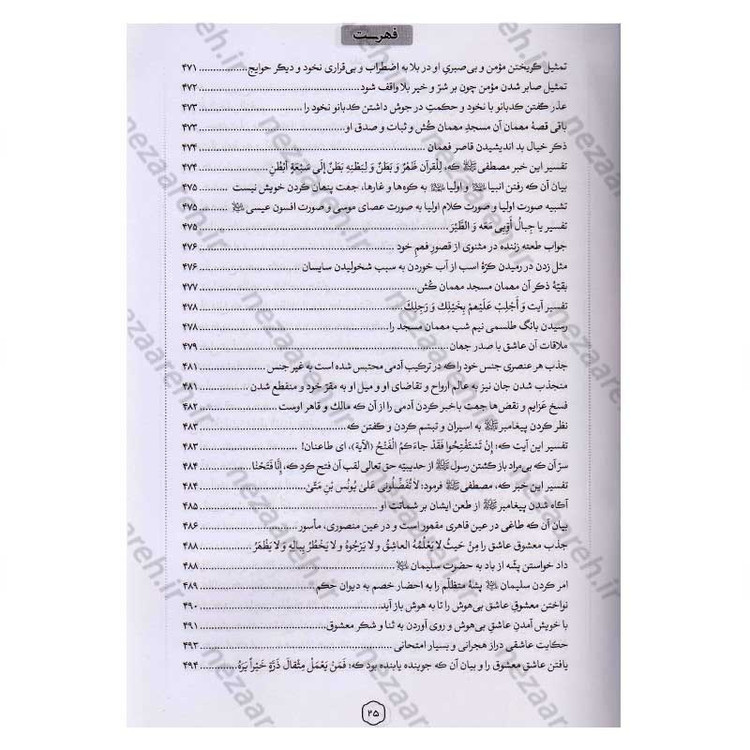 فهرست
تمثیل گریختن مؤمن و بی‌صبری او در بلا به اضطراب و بی‌قراری نخود و دیگر حوایج ........ ۴۷۱
تمثیل صابر شدن مؤمن چون بر شرّ و خیر بلا واقف شود ........ ۴۷۲
عذر گفتن کدبانو با نخود و حکمت در جوش داشتن کدبانو نخود را ........ ۴۷۳
باقی قصهٔ مهمان آن مسجد مهمان کُش و ثبات و صدق او ........ ۴۷۳
ذکر خیال بد اندیشیدن قاصر فهمان ........ ۴۷۴
تفسیر این خبر مصطفی ﷺ که، لِلْقرآن ظَهْرٌ وَ بَطْنٌ وَ لِبَطْنِهِ بَطْنٌ إلَى سَبْعَةِ أبْطُنٍ ........ ۴۷۴
بیان آن که رفتن انبیا و اولیا به کوه‌ها و غارها، جهت پنهان کردن خویش نیست ........ ۴۷۵
تشبیه صورت اولیا و صورت کلام اولیا به صورت عصای موسی و صورت افسون عیسی ........ ۴۷۵
تفسیر یا جِبالُ أوِّبِی مَعَه وَ الطَّیْرَ ........ ۴۷۵
جواب طعنه زننده در مثنوی از قصورِ فهمِ خود ........ ۴۷۶
مثل زدن در رمیدن کرّهٔ اسب از آب خوردن به سبب شخولیدن سایسان ........ ۴۷۶
بقیّهٔ ذکر آن مهمان مسجد مهمان کُش ........ ۴۷۷
تفسیر آیت وَ أَجْلِبْ عَلَیْهِمْ بِخَیْلِكَ وَ رَجِلِكَ ........ ۴۷۸
رسیدن بانگ طلسمی نیم شب مهمان مسجد را ........ ۴۷۸
ملاقات آن عاشق با صدر جهان ........ ۴۷۹
جذب هر عنصری جنس خود را که در ترکیب آدمی محتبس شده است به غیر جنس ........ ۴۸۱
منجذب شدن جان نیز به عالم ارواح و تقاضای او و میل او به مقرّ خود و منقطع شدن ........ ۴۸۱
فسخ عزایم و نقض‌ها جهت باخبر کردن آدمی را از آن که مالك و قاهر اوست ........ ۴۸۲
نظر کردن پیغامبر ﷺ به اسیران و تبسّم کردن و گفتن که ........ ۴۸۳
تفسیر این آیت که: إِنْ تَسْتَفْتِحُوا فَقَدْ جاءَکمُ الْفَتْحُ (الآیة)، ای طاعنان! ........ ۴۸۳
سرّ آن که بی‌مراد باز گشتن رسول ﷺ از حدیبیّه حق تعالی لقب آن فتح کرد که، إنَّا فَتَحْنَا ........ ۴۸۴
تفسیر این خبر که، مصطفی ﷺ فرمود: لا تُفَضِّلُونی عَلَى یُونُسَ بْنِ مَتّى ........ ۴۸۴
آگاه شدن پیغامبر ﷺ از طعن ایشان بر شماتت او ........ ۴۸۵
بیان آن که طاغی در عین قاهری مقهور است و در عین منصوری، مأسور ........ ۴۸۶
جذب معشوق عاشق را مِنْ حَیثُ لا یَعْلَمُهُ العاشِقُ وَ لا یَرْجُوهُ وَ لا یَخْطُرُ بِبالِهِ وَ لا یَظْهَرُ ........ ۴۸۸
داد خواستن پشّه از باد به حضرت سلیمان ........ ۴۸۸
امر کردن سلیمان پشهٔ متظلّم را به احضار خصم به دیوان حکم ........ ۴۸۹
نواختن معشوق عاشق بی‌هوش را تا به هوش باز آید ........ ۴۹۰
با خویش آمدنِ عاشقِ بی‌هوش و روی آوردن به ثنا و شکر معشوق ........ ۴۹۱
حکایت عاشقی دراز هجرانی و بسیار امتحانی ........ ۴۹۳
یافتن عاشق معشوق را و بیان آن که جوینده یابنده بود که؛ فَمَنْ یَعْمَلْ مِثْقالَ ذَرَّةٍ خَیْراً یَرَهُ ........ ۴۹۴
۲۵
nezaareh.ir